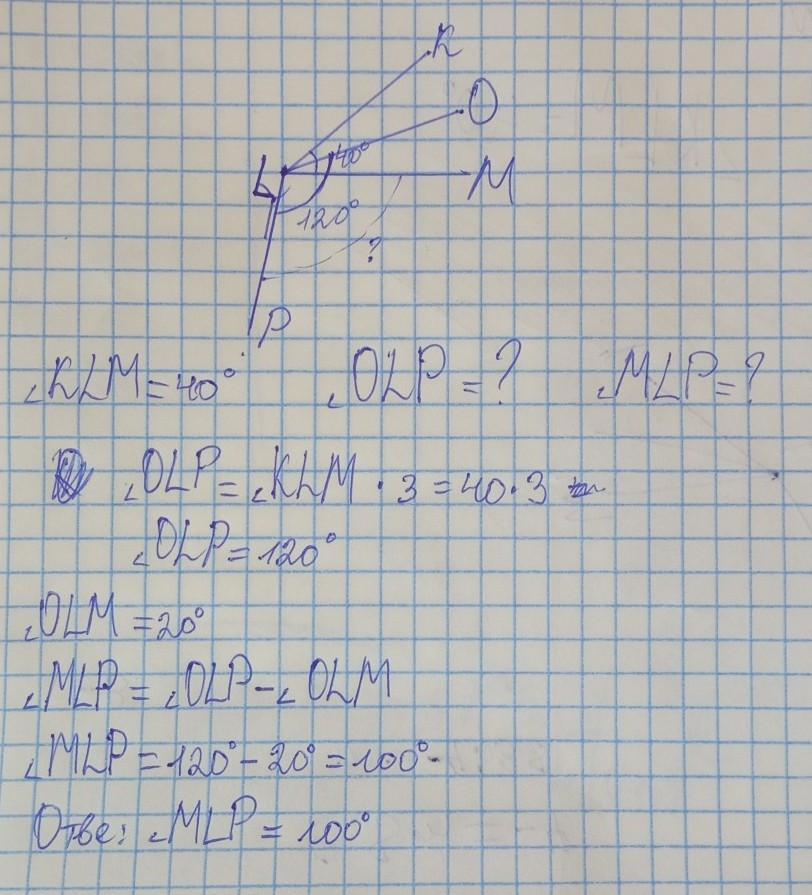 K
O
40°
L
M
120°
?
P
∠KLM = 40° ∠OLP = ? ∠MLP = ?
∠OLP = ∠KLM · 3 = 40 · 3
∠OLP = 120°
∠OLM = 20°
∠MLP = ∠OLP - ∠OLM
∠MLP = 120° - 20° = 100°
Отве: ∠MLP = 100°